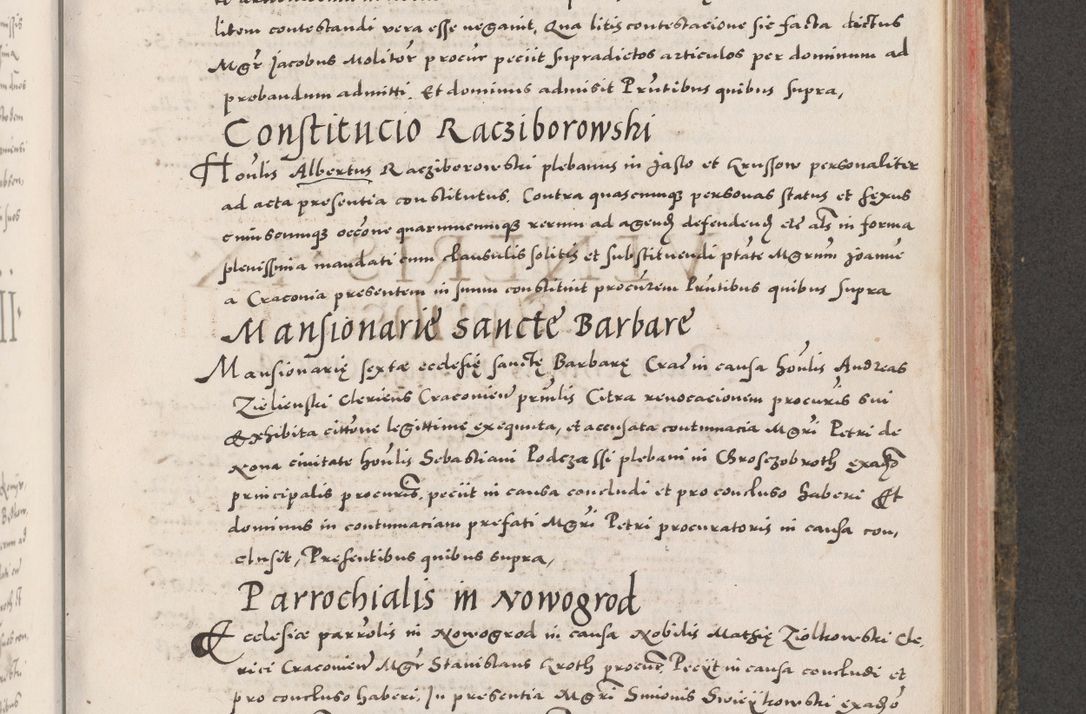 litem contestandi vera esse negavit, Qua litiscontestacione sic facta dictus
Mgr Jacobus Molitor procur peciit supradictos articulos per dominum ad
probandum admitti. Et dominus admisit Prntibus quibus supra,
Constitucio Racziborowski
Honlis Albertus Racziborowski plebanus in Jaslo et Krussow personaliter
ad acta presentia constitutus. Contra quascumq personas status et sexus
cuiuscumq occone quarumcumq rerum ad agend defendend etc als in forma
plenissima mandati cum clausulis solitis et substituendi ptate Mgrum Joanne
a Craconia presentem in suum constituit procurem Prntibus quibus supra
Mansionarie sancte Barbare
Mansionarię sextæ ecclesię sanctę Barbarę Crac in causa honlis Andreas
Zielienski Clericus Cracovien prmlis Citra revocacionem procuris sui
Exhibita cittone legittime exequuta, et accusata contumacia Mgri Petri de
Nona civitate honlis Sebastiani Podczassi plebani in Chrosczobroth exadso
principalis procuris. peciit in causa concludi et pro concluso haberi Et
dominus in contumaciam prefati Mgri Petri procuratoris in causa con,
clusit, Presentibus quibus supra,
Parrochialis in Nowogrod
Ecclesiæ parrolis in Nowogrod in causa Nobilis Mathię Ziolkowski Cle,
rici Cracovien Mgr Stanislaus Kroth procur Peciit in causa concludi et
pro concluso haberi. In presentia Mgri Simonis Swięykowski exadso